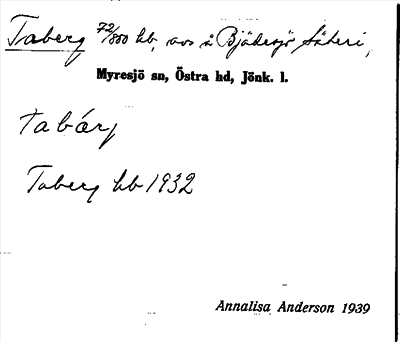 Taberg 72/800 hb, avs å Bjädesjö Säteri,
Myresjö sn, Östra hd, Jönk. l.
tabärj
Taberg hb 1932
Annalisa Anderson 1939